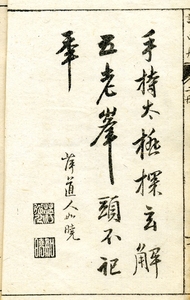 手持太極探玄解
五老峯頭不記
年
道人